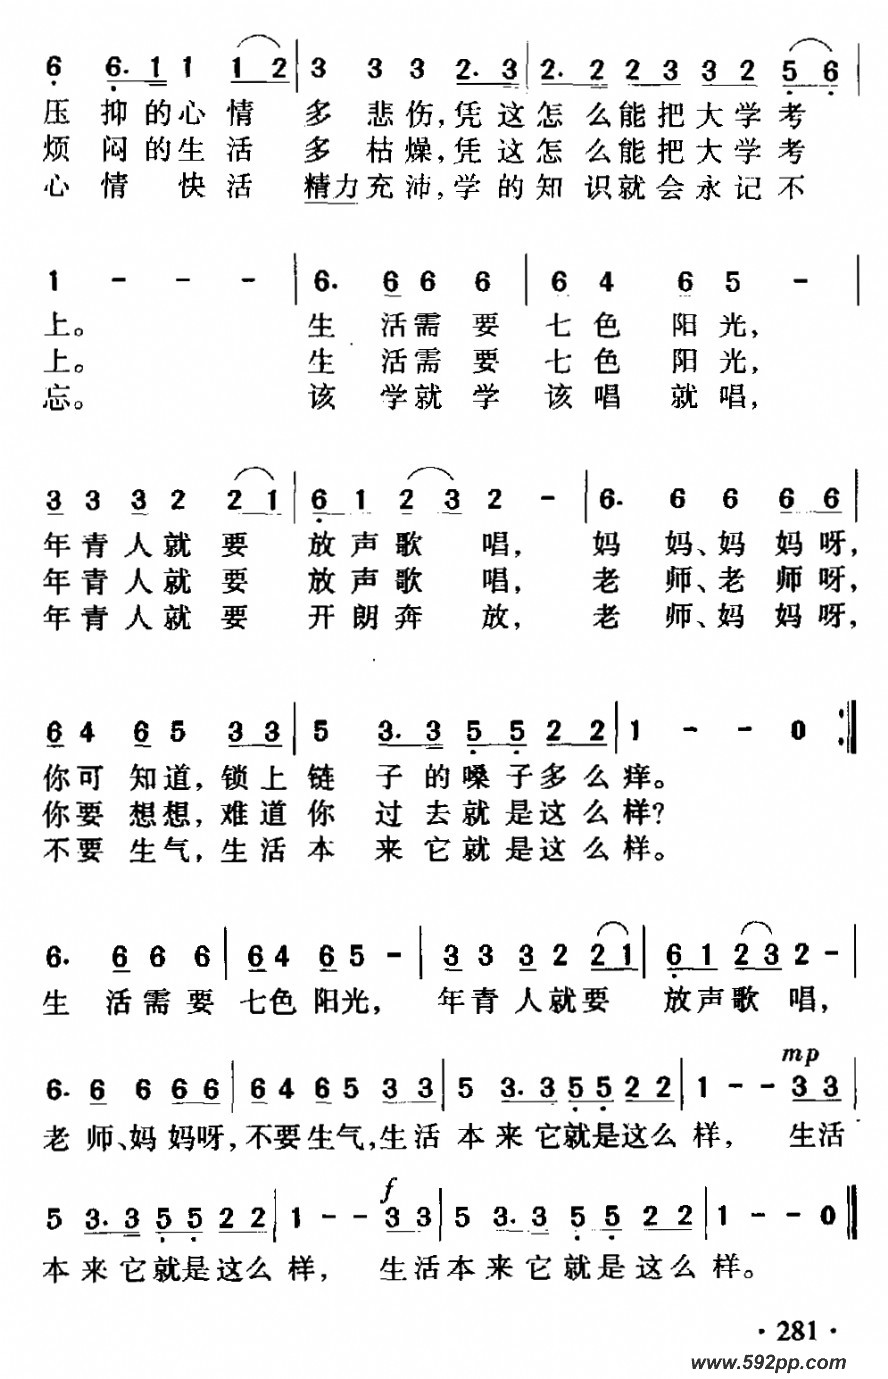 6 6. 1 1 1 1 2 | 3 3 3 3 2. 3 | 2. 2 2 2 3 3 2 5 6 |
压 抑的心 情 多 悲伤,凭这怎么能把大学考
烦 闷的生 活 多 枯燥,凭这怎么能把大学考
心 情 快 活 精力充沛,学的知识就会永记不
1 - - - | 6. 6 6 6 | 6 4 6 5 - |
上。 生 活需要 七色 阳光,
上。 生 活需要 七色 阳光,
忘。 该 学就学 该唱 就唱,
3 3 3 2 2 1 | 6 1 2 3 2 - | 6. 6 6 6 6
年青人就要 放声歌 唱, 妈 妈、妈妈呀,
年青人就要 放声歌 唱, 老 师、老师呀,
年青人就要 开朗奔 放, 老 师、妈妈呀,
6 4 6 5 3 3 | 5 3. 3 5 5 2 2 2 | 1 - - 0 :‖
你可 知道,锁上链 子的嗓子多么痒。
你要 想想,难道你 过去就是这么样?
不要 生气,生活本 来它就是这么样。
6. 6 6 6 | 6 4 6 5 - | 3 3 3 2 2 1 | 6 1 2 3 2 - |
生 活需要 七色阳光, 年青人就要 放声歌 唱,
mp
6. 6 6 6 6 | 6 4 6 5 3 3 | 5 3. 3 5 5 2 2 | 1 - - 3 3 |
老师、妈妈呀,不要生气,生活 本来它就是这么 样, 生活
f
5 3. 3 5 5 2 2 | 1 - - 3 3 | 5 3. 3 5 5 2 2 | 1 - - 0 ‖
本来它就是这么 样, 生活本来它就是这么 样。
· 281 ·
www.592pp.com